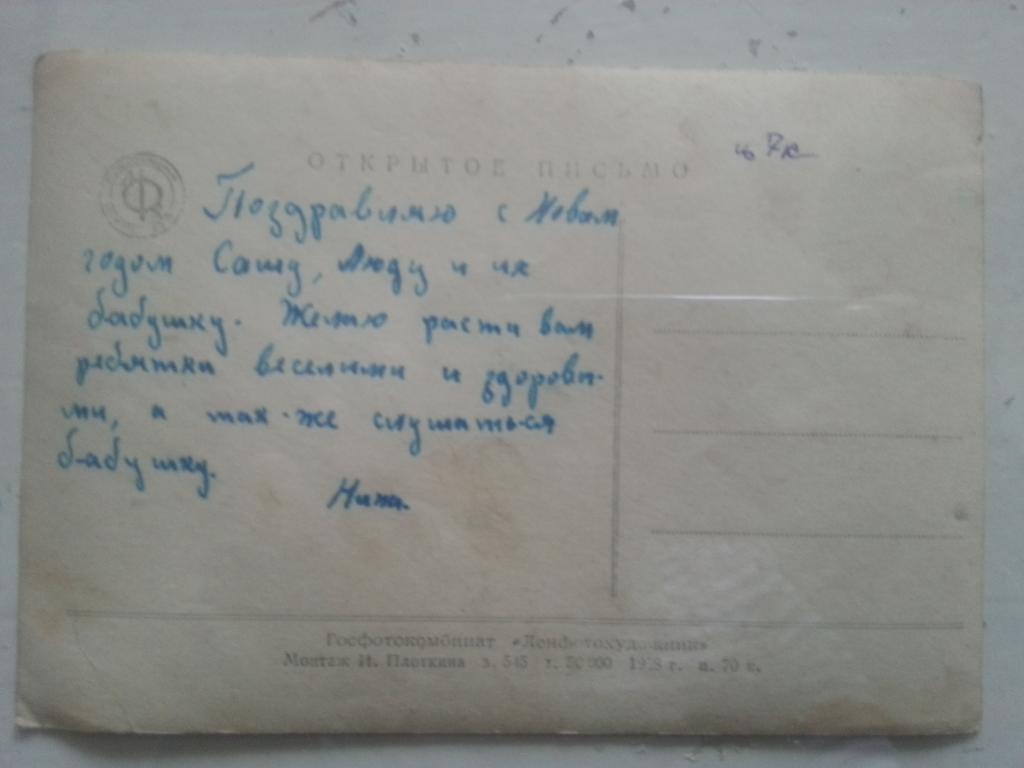 ОТКРЫТОЕ ПИСЬМО
ц 7к
Поздравляю с Новым
годом Сашу, Люду и их
бабушку. Желаю расти вам
ребятки веселыми и здоровы-
ми, а так-же слушаться
бабушку.
Нина.
Госфотокомбинат «Ленфотохудожник»
Монтаж И. Плоткина з. 545 т. 50 000 19 8 г. ц. 70 к.